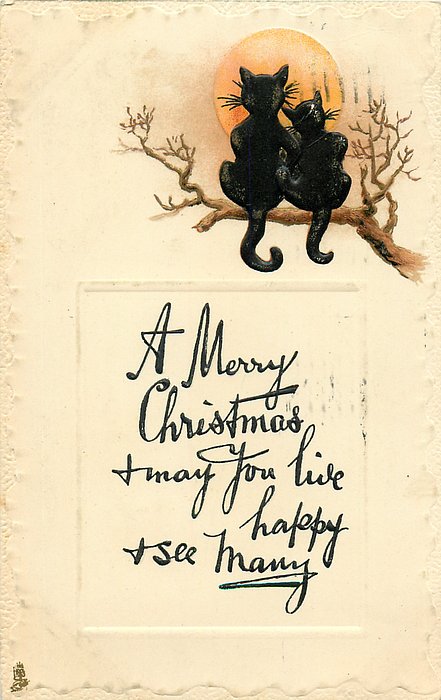 A Merry
Christmas
+ may You live
happy
+ see Many